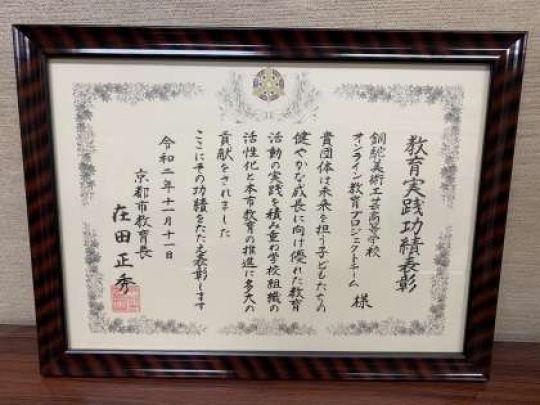 教育実践功績表彰
銅駝美術工芸高等学校
オンライン教育プロジェクトチーム 様
貴団体は未来を担う子どもたちの
健やかな成長に向け優れた教育
活動の実践を積み重ね学校組織の
活性化と本市教育の推進に多大の
貢献をされました
ここにその功績をたたえ表彰します
令和二年十一月十一日
京都市教育長
在田正秀